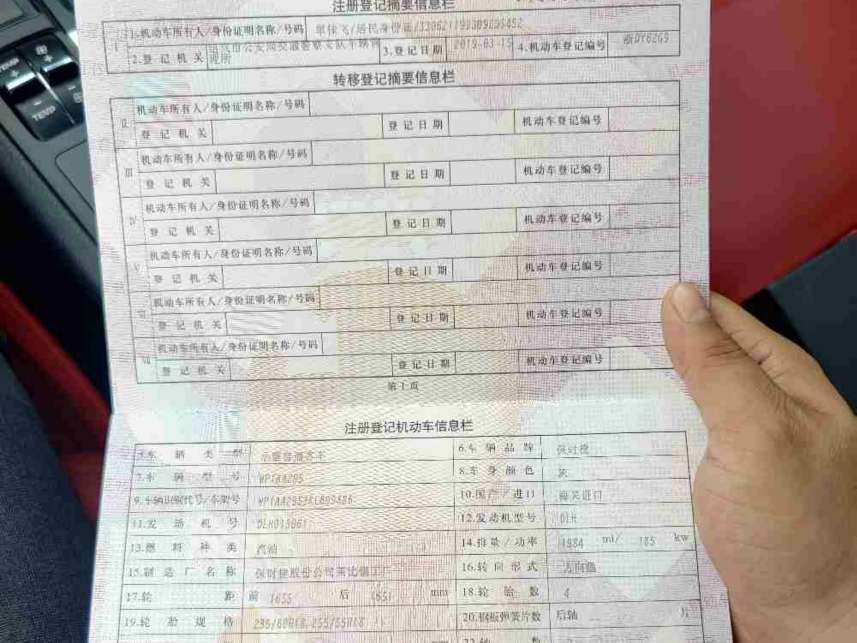 注册登记摘要信息栏
I 1.机动车所有人/身份证明名称/号码 /居民身份证/
2.登 记 机 关 3.登记日期 2019-03-15 4.机动车登记编号
转移登记摘要信息栏
II 机动车所有人/身份证明名称/号码
登 记 机 关 登记日期 机动车登记编号
III 机动车所有人/身份证明名称/号码
登 记 机 关 登记日期 机动车登记编号
IV 机动车所有人/身份证明名称/号码
登 记 机 关 登记日期 机动车登记编号
V 机动车所有人/身份证明名称/号码
登 记 机 关 登记日期 机动车登记编号
VI 机动车所有人/身份证明名称/号码
登 记 机 关 登记日期 机动车登记编号
VII 机动车所有人/身份证明名称/号码
登 记 机 关 登记日期 机动车登记编号
第1页
注册登记机动车信息栏
5.车 辆 类 型 小型普通客车 6.车 辆 品 牌 保时捷
7.车 辆 型 号 WP1AA295 8.车 身 颜 色 灰
9.车辆识别代号/车架号 10.国产/进口 海关进口
11.发 动 机 号 12.发动机型号 DLH
13.燃 料 种 类 汽油 14.排量/功率 1984 ml/ 185 kw
15.制 造 厂 名 称 保时捷股份公司莱比锡工厂 16.转 向 形 式 方向盘
17.轮 距 前 1655 后 1651 mm 18.轮 胎 数 4
19.轮 胎 规 格 235/60R18,255/55R18 20.钢板弹簧片数 后轴 片
TEMP
TEMP